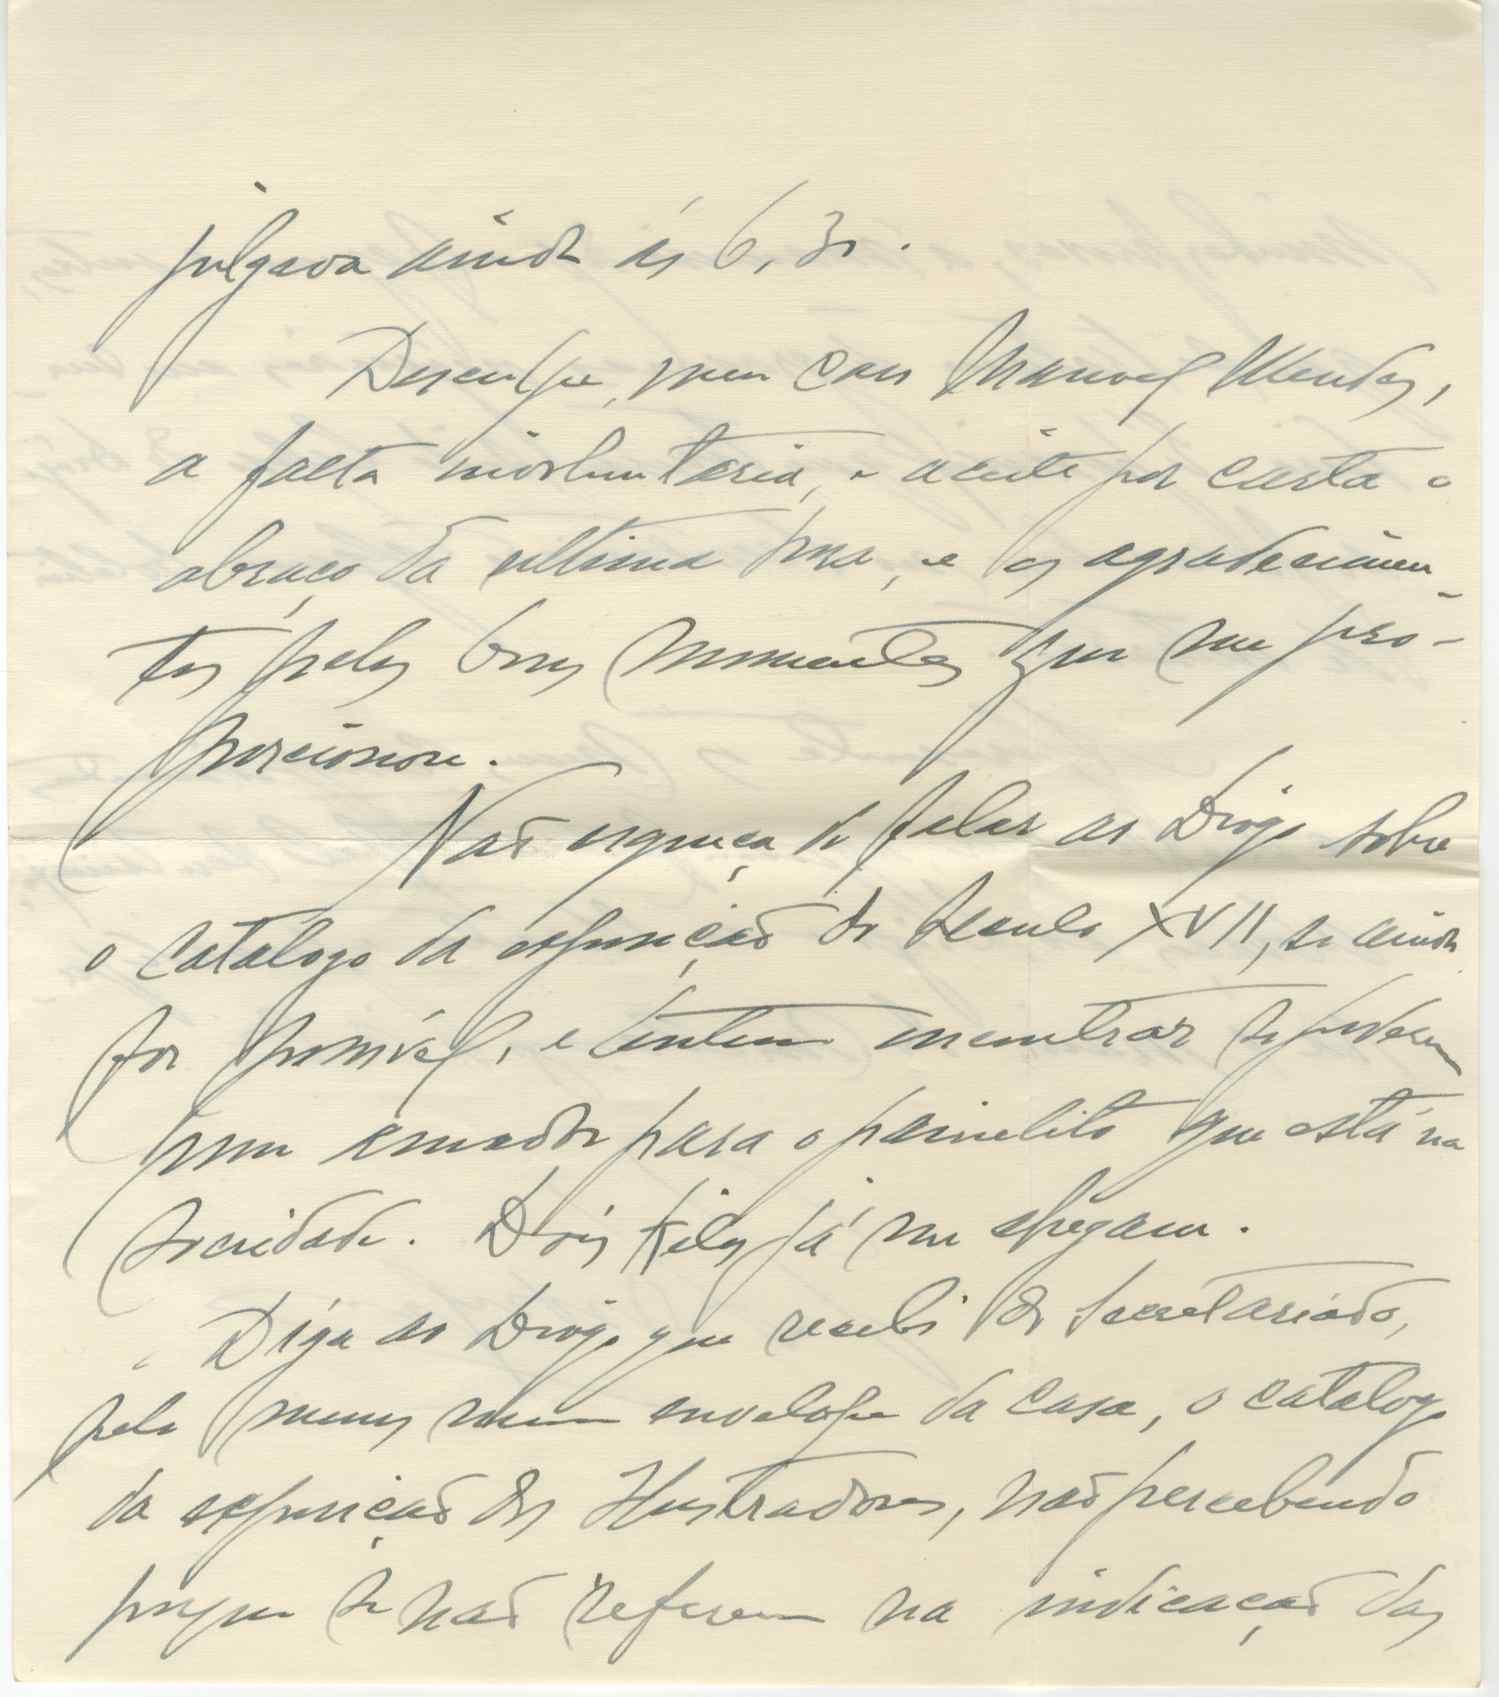 julgava ainda ás 6,30.
Desculpe, meu caro Manuel Mendes,
a falta involuntaria, e aceite por carta o
abraço da ultima hora, e os agradecimen-
tos pelos bons momentos que me pro-
porcionou.
Não esqueça de falar ao Diogo sobre
o catalogo da exposição do Seculo XVII, se ainda
for possível, e tentem encontrar se puderem
um amador para o painelito que está na
Sociedade. Dois já me chegam.
Diga ao Diogo que recebi do Secretariado,
pelo menos num envelope da casa, o catalogo
da exposição dos Ilustradores, não percebendo
porque se não referem na indicação das